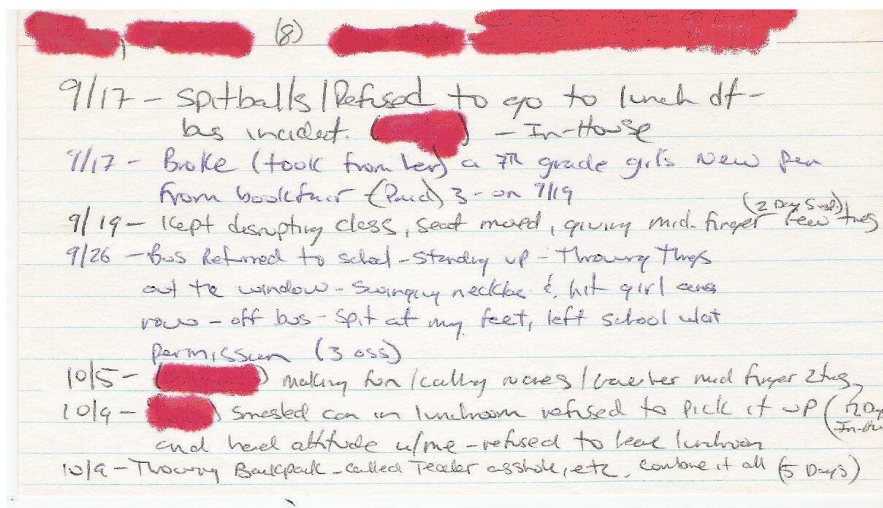 (8)
9/17 - Spitballs / Refused to go to lunch df -
bus incident. ( ) - In-House
9/17 - Broke (took from her) a 7th grade girls New pen
from bookfair - (Paid) 3 - on 9/19
9/19 - Kept disrupting class, seat moved, giving mid. finger (2 Day ) few times
9/26 - Bus Returned to school - Standing up - Throwing Things
out the window - Swinging necklace & hit girl
row - off bus - Spit at my feet, left school w/out
permission (3 oss)
10/5 - ( ) making fun / calling names / mid finger 2
10/9 - ( ) smashed can in lunchroom refused to pick it up ( Day
In-
and had attitude w/me - refused to leave lunchroom
10/9 - Throwing Backpack - called Teacher asshole, etc. combine it all (5 Days)